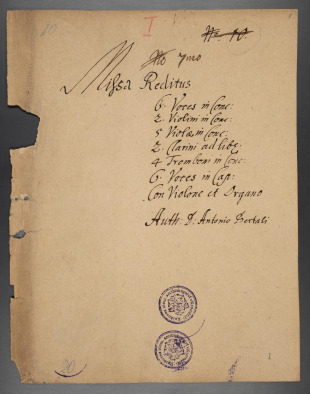 I
No 10.
No 7mo
Missa Reditus
6. Voces in Conc:
2. Violini in Conc:
5 Violæ in Conc:
2. Clarini ad lib:
4 Tromboni in Conc:
6. Voces in Cap:
Con Violone et Organo
Auth: D. Antonio Bertali
1